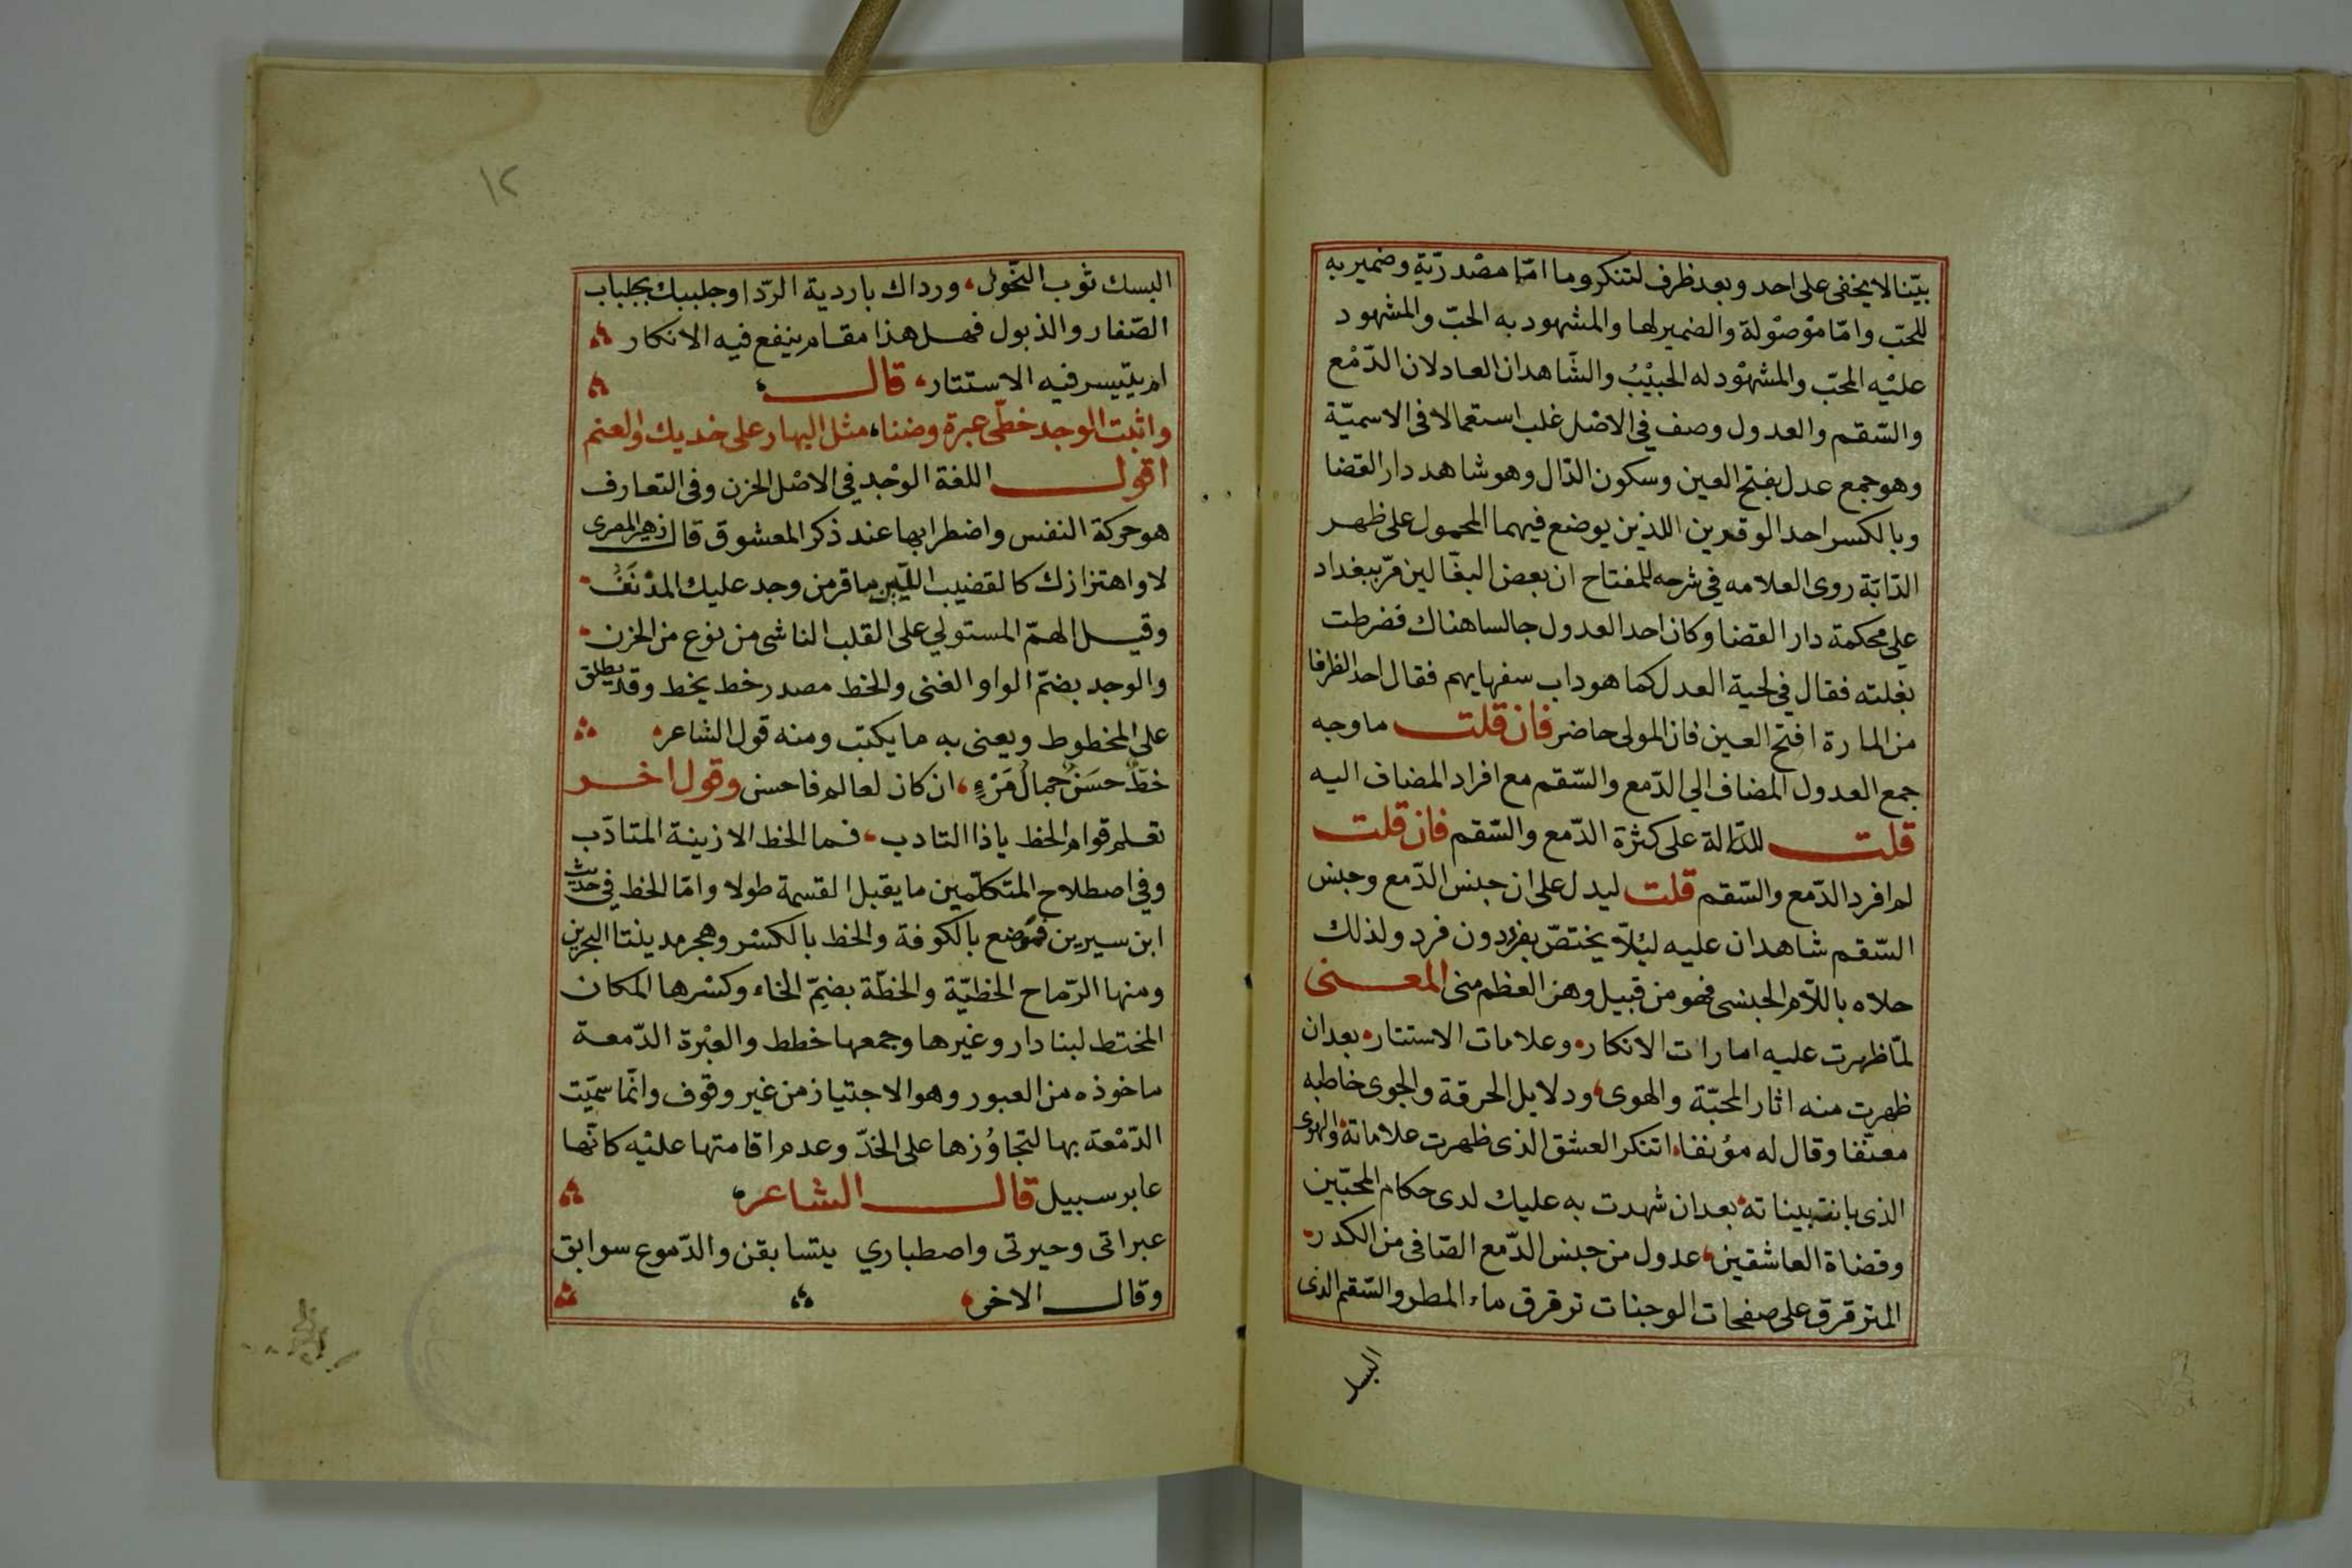 بيّنا لا يخفى على احد وبعد ظرف لتنكر وما امّا مصْدريّة وضمير به
للحبّ وامّا موْصوْلة والضمير لها والمشهود به الحبّ والمشهود
عليْه المحبّ والمشهوْد له الحبيْبُ والشّاهدان العادلان الدّمْع
والسّقم والعدول وصف في الاصْل غلب استعمالا في الاسميّة
وهو جمع عدل بفتح العين وسكون الدّال وهو شاهد دار القضا
وبالكسر احد الوقرين اللذين يوضع فيهما المحمول على ظهر
الدّابّة روى العلامه في شرحه للمفتاح ان بعض البغّالين مرّ ببغداد
على محكمة دار القضا وكان احد العدول جالسا هناك فضرطت
بغلته فقال في لحية العدل كما هو داب سفهايهم فقال احد الظرفا
من المارة افتح العين فان المولى حاضر فان قلت ما وجه
جمع العدول المضاف الي الدّمع والسّقم مع افراد المضاف اليه
قلت للدّالة على كثرة الدّمع والسّقم فان قلت
لم افرد الدّمع والسّقم قلت ليدل على ان جنس الدّمع وجنس
السّقم شاهدان عليه لئلاّ يختصّ بفرد دون فرد ولذلك
حلاه باللاّم الجنسى فهو من قبيل وهن العظم منى المعنى
لمّا ظهرت عليه امارات الانكار، وعلامات الاستتار، بعد ان
ظهرت منه اثار المحبّة والهوى، ودلايل الحرقة والجوى خاطبه
معنّفا وقال له مؤنفا، اتنكر العشق الذى ظهرت علاماتة، والهوى
الذى بانت بيناتة، بعد ان شهدت به عليك لدى حكام المحبّين
وقضاة العاشقين، عدول من جنس الدّمع الصّافى من الكدر،
المترقرق على صفحات الوجنات ترقرق ماء المطر والسّقم الذى
البسـ
١٢
البسك ثوب النّحول، ورداك باردية الرّدا وجلببك بجلباب
الصّفار والذبول فهل هذا مقام ينفع فيه الانكار
ام يتيسر فيه الاستتار، قال
واثبت الوجد خطّى عبرة وضنا، مثل البهار على خديك والعنم
اقول اللغة الوجْد في الاصْل الحزن وفى التعارف
هو حركة النفس واضطرابها عند ذكر المعشوق قال زهير المصرى
لا واهتزازك كالقضيب الليّن ما قر من وجد عليك المدْنَفُ
وقيل الهمّ المستولي على القلب الناشى من نوع من الحزن
والوجد بضمّ الواو الغنى والخط مصدر خط يخط وقد يطلق
على المخطوط ويعنى به ما يكتب ومنه قول الشاعر
خطّ حسَنٌ جمالُ مَرْءٍ، ان كان لعالم فاحسن وقول اخر
تعلم قوام الخط ياذا التادب، فما الخط الا زينة المتادّب
وفي اصطلاح المتكلّمين ما يقبل القسمة طولا وامّا الخط في حديث
ابن سيرين فموضع بالكوفة والخط بالكسْر وهجر مدينتا البحرين
ومنها الرّماح الخطيّة والخطّة بضمّ الخاء وكسْرها المكان
المختط لبنا دار وغيرها وجمعها خطط والعبْرة الدّمعة
ماخوذه من العبور وهو الاجتياز من غير وقوْف وانّما سمّيت
الدّمْعة بها لتجاوُزها على الخدّ وعدم اقامتها عليْه كانّها
عابر سبيل قال الشاعر
عبراتى وحيرتى واصطباري يتسابقن والدّموع سوابق
وقال الاخر